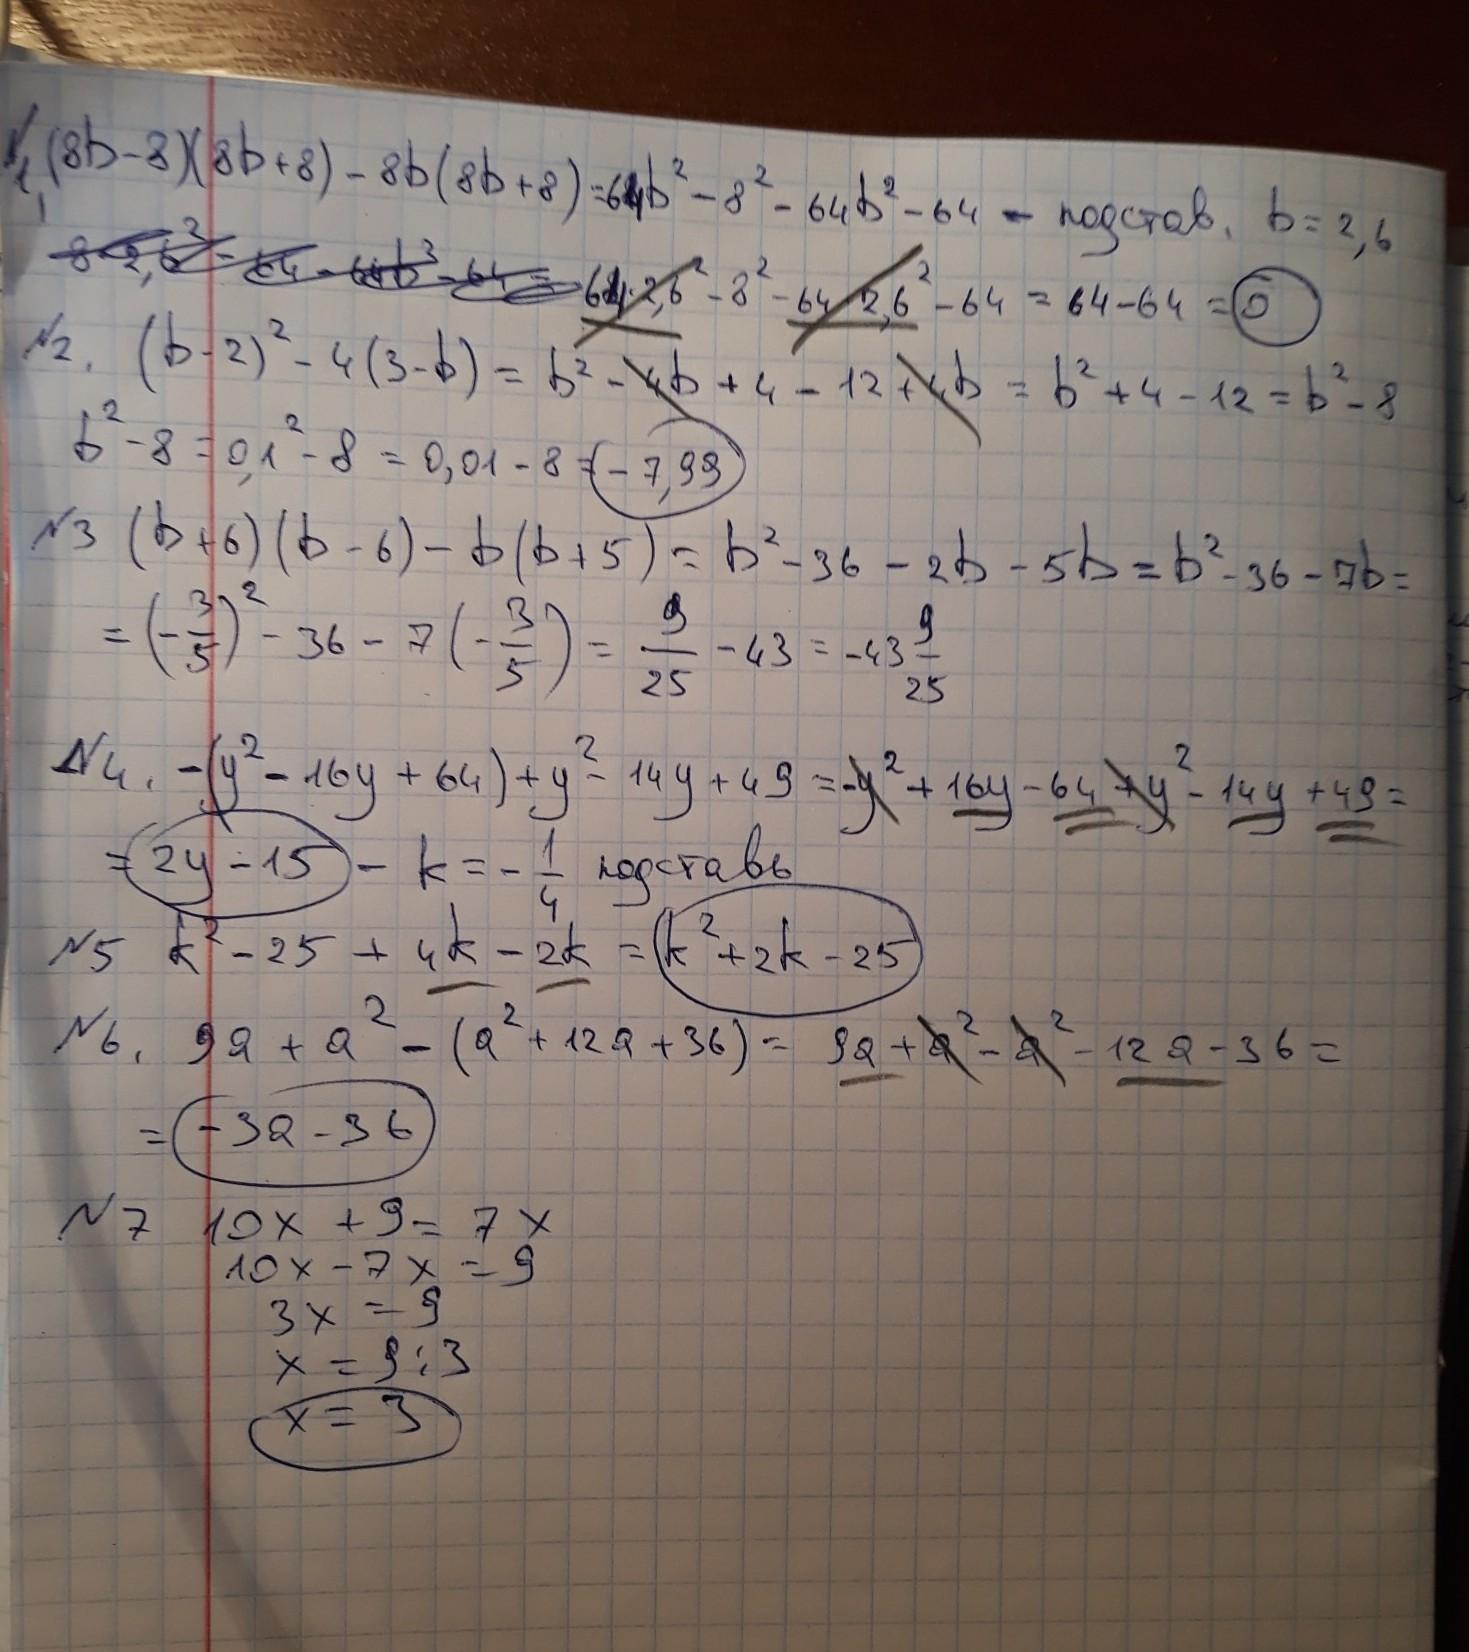 №1, (8b-8)(8b+8) - 8b(8b+8) = 64b² - 8² - 64b² - 64 - подстав. b = 2,6
8·2,6² - 64 - 64b² - 64 = 64·2,6² - 8² - 64·2,6² - 64 = 64-64 = 0
№2. (b-2)² - 4(3-b) = b² - 4b + 4 - 12 + 4b = b² + 4 - 12 = b² - 8
b² - 8 = 0,1² - 8 = 0,01 - 8 = -7,99
№3 (b+6)(b-6) - b(b+5) = b² - 36 - 2b - 5b = b² - 36 - 7b =
= (-3/5)² - 36 - 7(-3/5) = 9/25 - 43 = -43 9/25
№4. -(y² - 16y + 64) + y² - 14y + 49 = -y² + 16y - 64 + y² - 14y + 49 =
= 2y - 15 - k = -1/4 подставь
№5 k² - 25 + 4k - 2k = k² + 2k - 25
№6. 9a + a² - (a² + 12a + 36) = 9a + a² - a² - 12a - 36 =
= -3a - 36
№7 10x + 9 = 7x
10x - 7x = 9
3x = 9
x = 9:3
x = 3